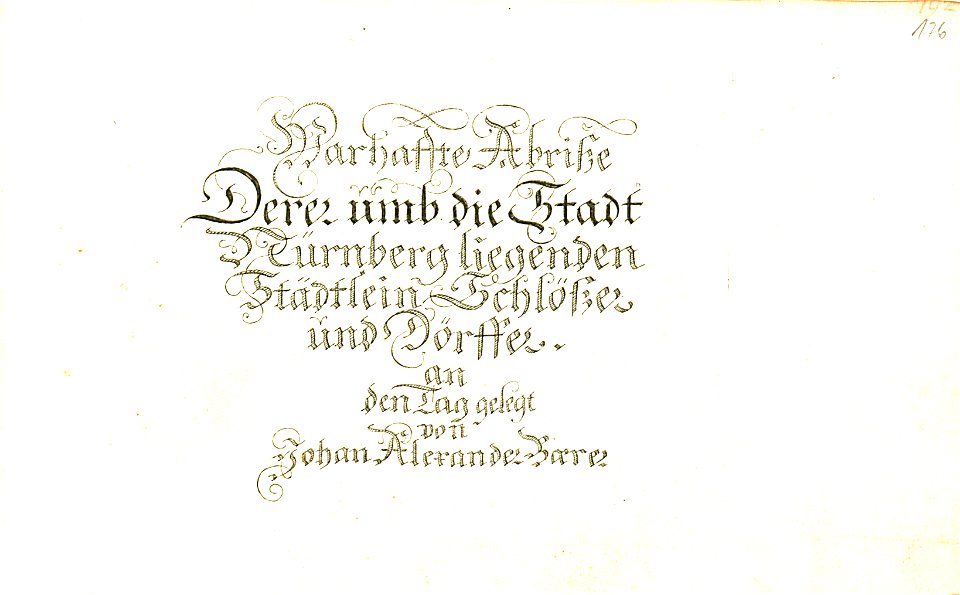 176
Warhaffte Abriße
Derer umb die Stadt
Nürnberg liegenden
Städtlein Schlößer
und Dörffer.
an
den Tag gelegt
von
Johan Alexander Bœner